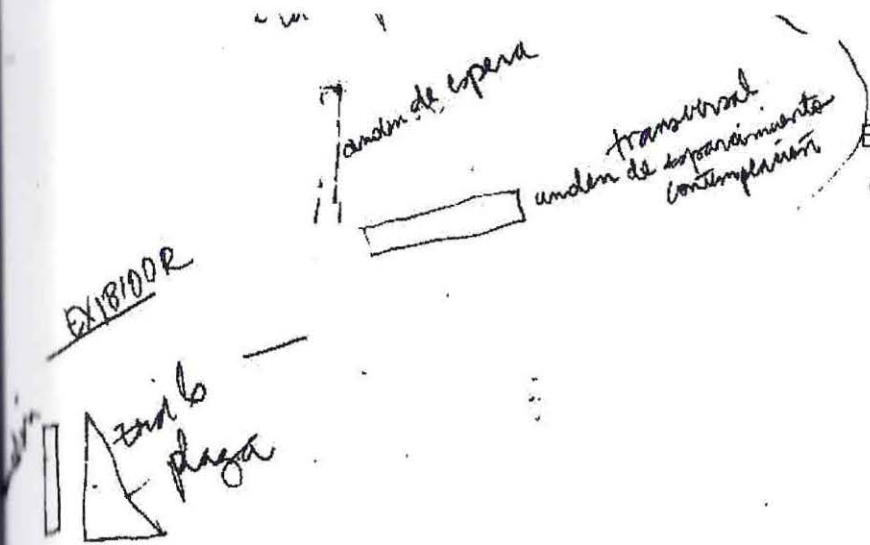 anden de espera
transversal
anden de esparcimiento
contemplación
EXIBIDOR
plaza